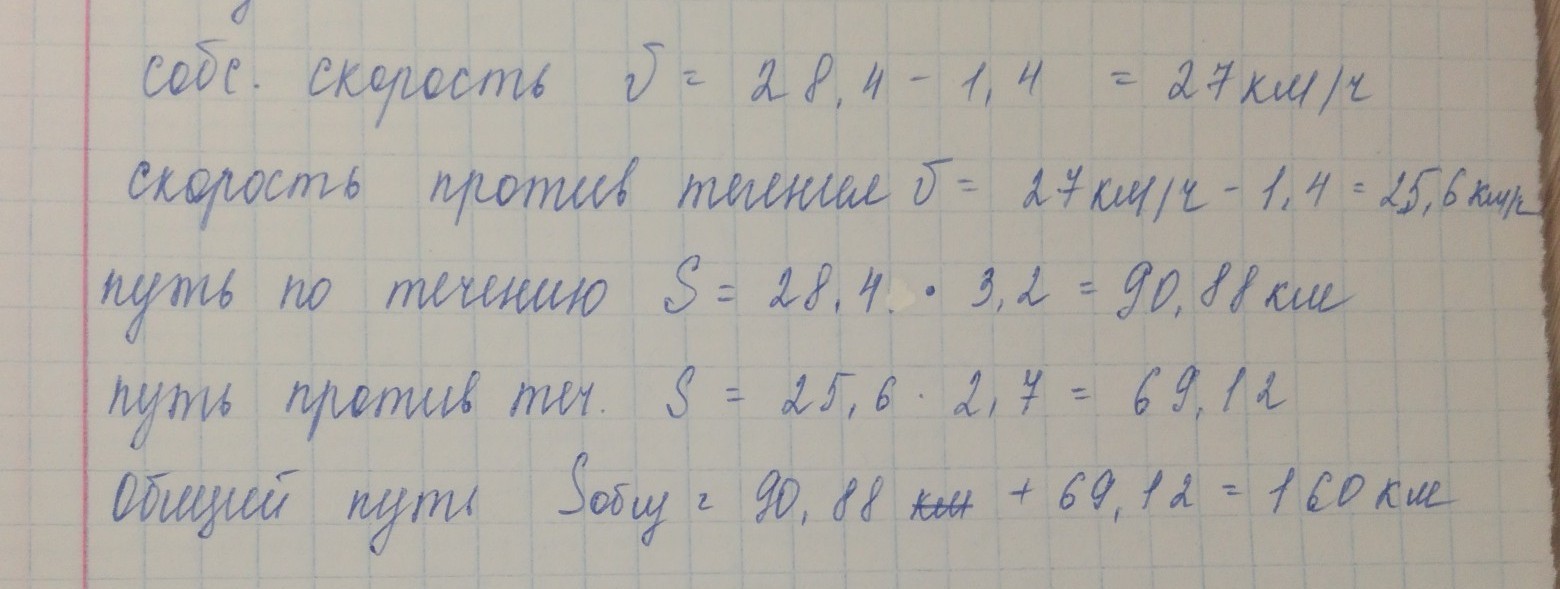 собс. скорость v = 28,4 - 1,4 = 27 км/ч
скорость против течения v = 27 км/ч - 1,4 = 25,6 км/ч
путь по течению S = 28,4 · 3,2 = 90,88 км
путь против теч. S = 25,6 · 2,7 = 69,12
Общий путь Sобщ = 90,88 км + 69,12 = 160 км